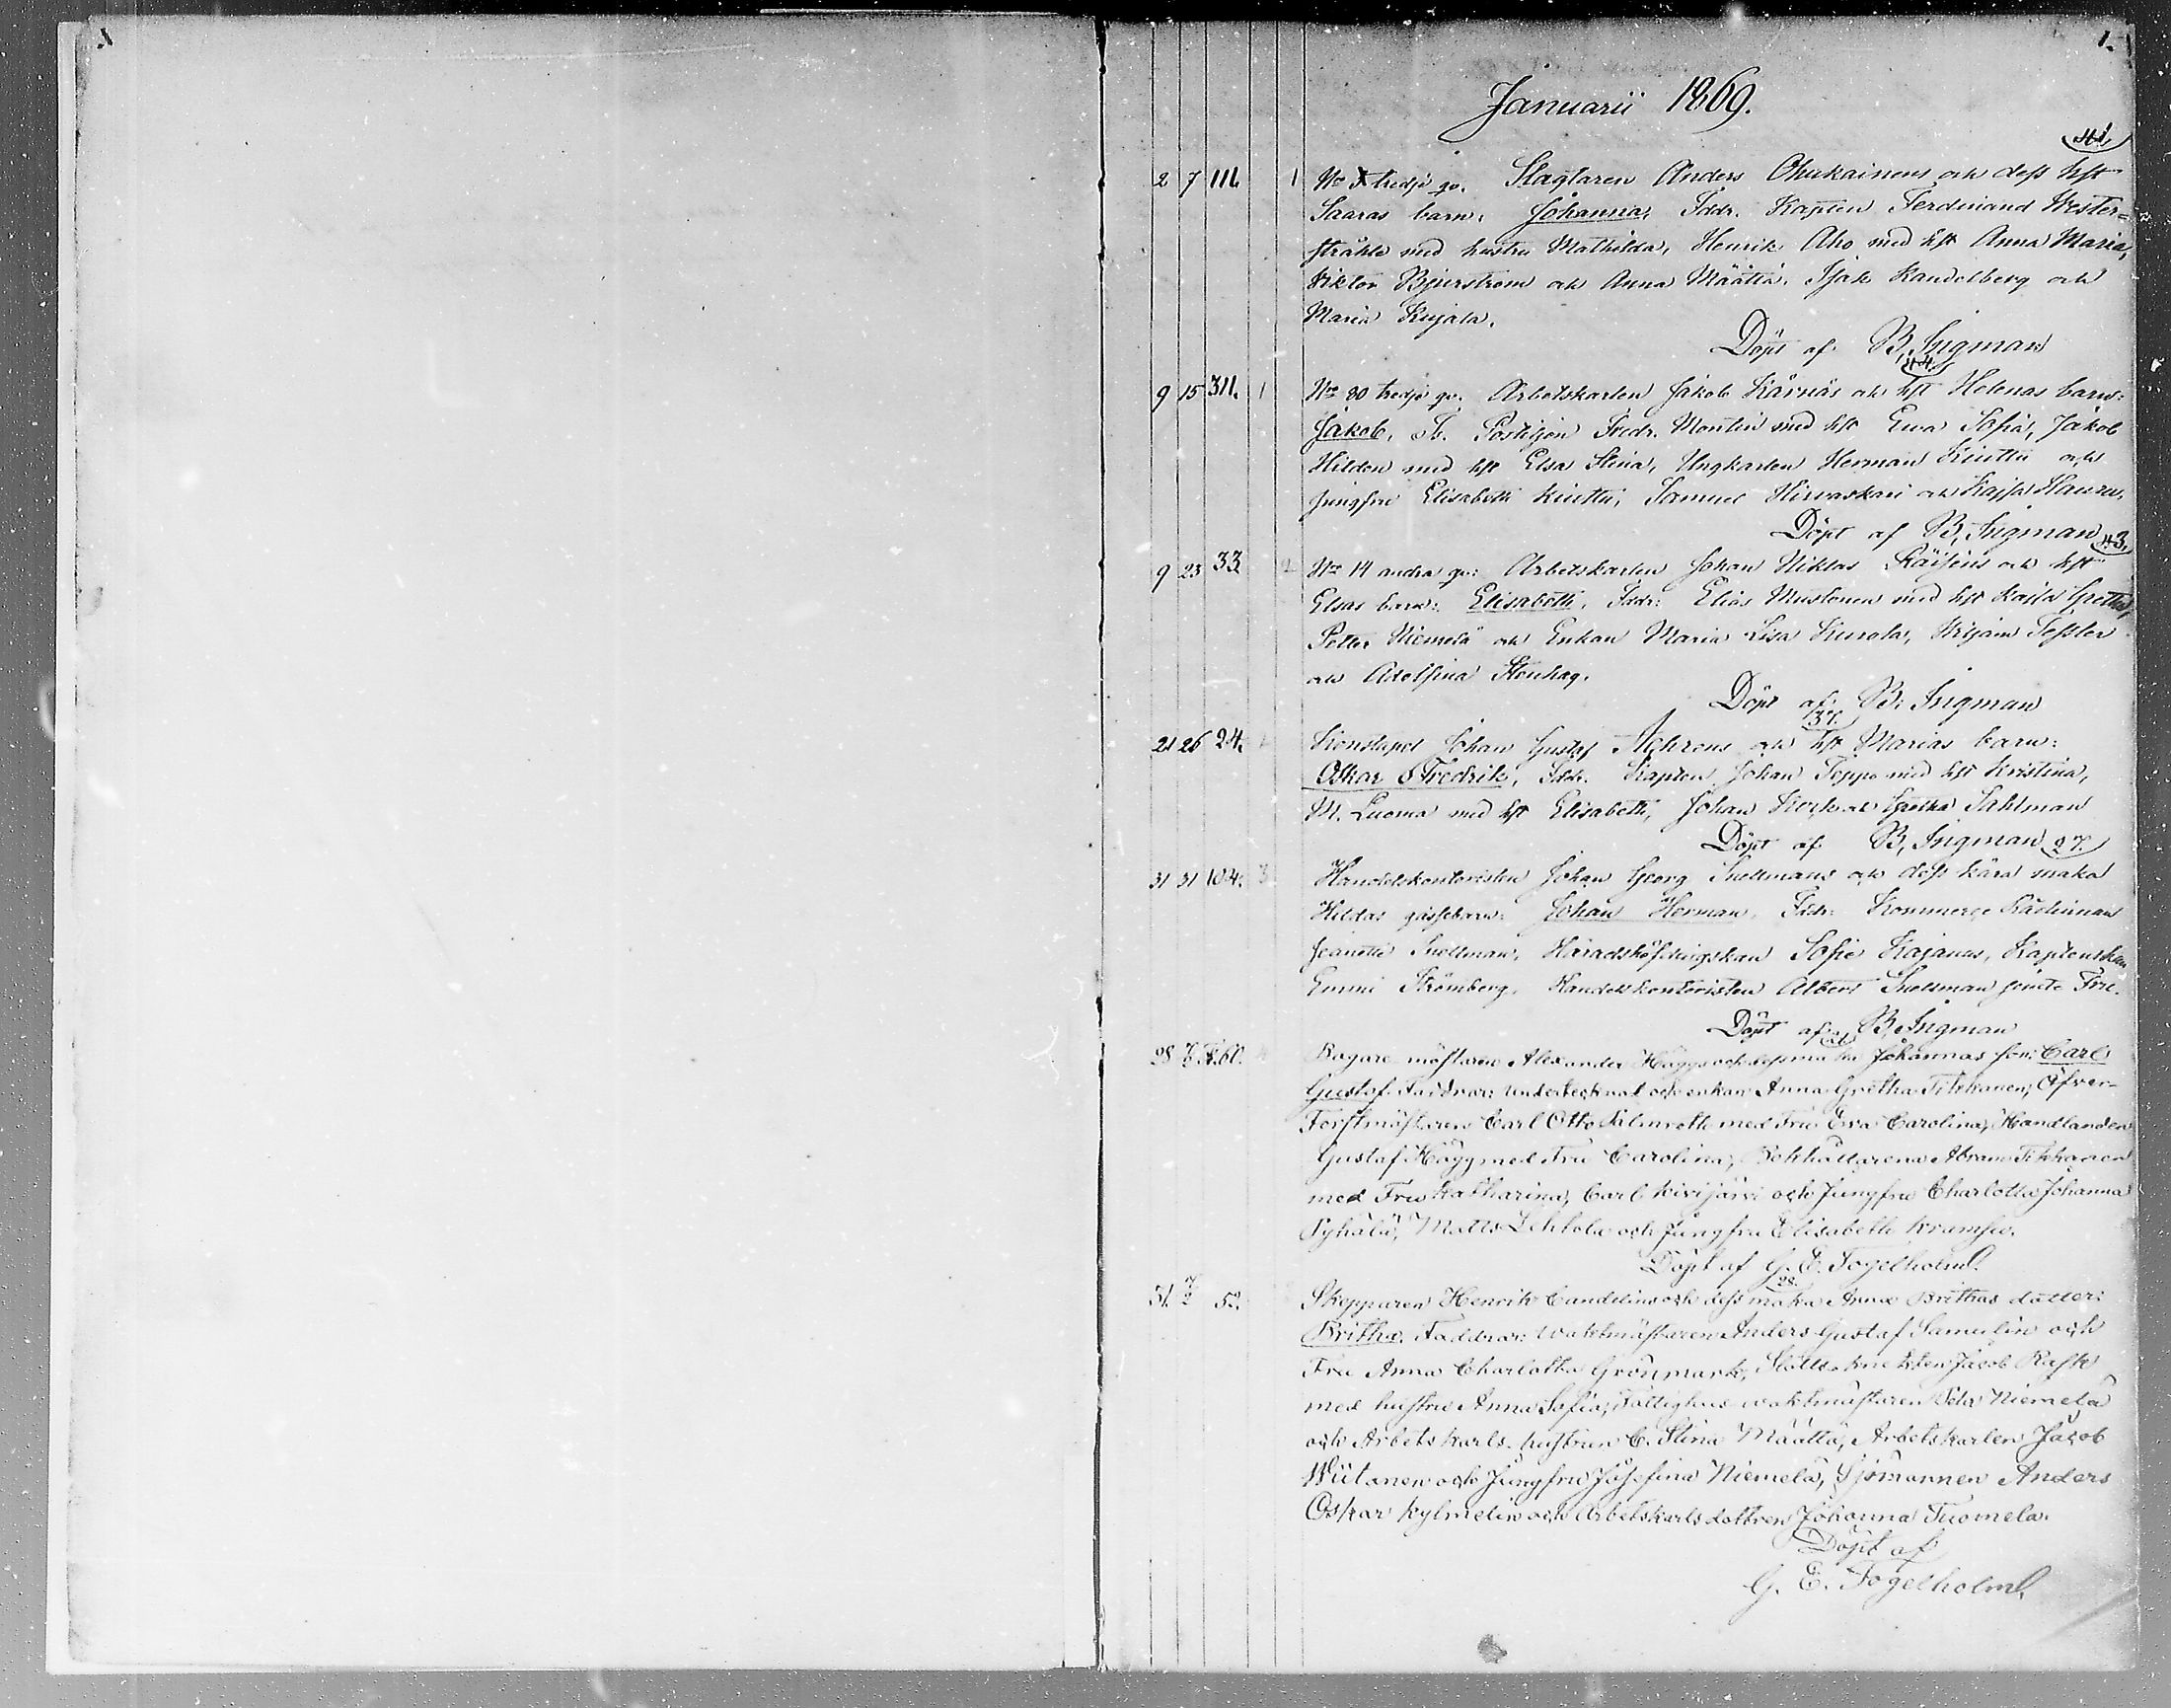 1.
Januarii 1869.
41,
2 7 111. 1 No 5 tredje qv. Slagtaren Anders Ohukainens och dess hst
Saaras barn: Johanna, Fddr. Kapten Ferdinand Wester=
stråhle med hustru Mathilda, Henrik Aho med hst Anna Maria,
Viktor Bjurström och Anna Määttä. Isak Kandelberg och
Maria Kujala.
Döpt af B. Ingman
44.
9 15 311. 1 No 30 tredje qv. Arbetskarlen Jakob Kärnäs och hst Helenas barn:
Jakob, F. Postiljon Fredr. Montin med hst Eva Sofia, Jakob
Hilden med hst Elsa Stina, Ungkarlen Herman Kinttu och
jungfru Elisabeth Kinttu, Samuel Hirvaskari och Kajsa Hauru.
Döpt af B. Ingman
43,
9 23 33 2 No 14 andra qv: Arbetskarlen Johan Niklas Räisäns och hst
Elsas barn: Elisabeth. Fddr: Elias Mustonen med hst Kajsa Gretha,
Petter Niemelä och Enkan Maria Lisa Kurola, Wiljam Tessler
och Adolfina Stenhag.
Döpt af B: Ingman
37.
21 26 24. Konstapel Johan Gustaf Aghrens och hst Marias barn:
Oskar Fredrik, Fddr. Kapten Johan Teppo med hst Kristina,
M. Luoma med hst Elisabeth, Johan Kock och Gretha Sahlman
Döpt af B. Ingman
27.
31 31 104. 3 Handelskontoristen Johan Georg Snellmans och dess kära maka
Hildas gossebarn: Johan Herman. Fddr: Kommerce Rådinnan
Jeanette Snellman, Häradshöfdingskan Sofie Kajanus, Kaptenskan
Emmi Strömberg. Handelskontoristen Albert Snellman jemte Fru.
Döpt af B. Ingman
28 7/2 60. Bagare mästaren Alexander Häggs och dess maka Johannas son: Carl
Gustaf. Faddrar: undertecknad och enkan Anna Gretha Tikkanen, Öfver-
Forstmästaren Carl Otto Silmroth med Fru Eva Carolina, Handlanden
Gustaf Hägg med Fru Carolina, Bokhållaren Abram Tikkanen
med Fru Katharina, Carl Kivijärvi och Jungfru Charlotta Johanna
Pyhälä, Matts Lehtola och Jungfru Elisabeth Kramsu.
Döpt af G. E. Fogelholm.
28.
31. 7/2 52. Skepparen Henrik Candelins och dess maka Anna Brithas dotter:
Britha. Faddrar: Waktmästaren Anders Gustaf Samulin och
Fru Anna Charlotta Grönmark, Slottsknekten Jacob Rask
med hustru Anna Sofia, Fattighus-waktmästaren Petter Niemelä
och Arbetskarls. hustrun C. Stina Määttä, Arbetskarlen Jacob
Wiitanen och Jungfru Josefina Niemelä, Sjömannen Anders
Oskar Kylmelin och Arbetskarlsdottren Johanna Tuomela.
Döpt af
G. E. Fogelholm.